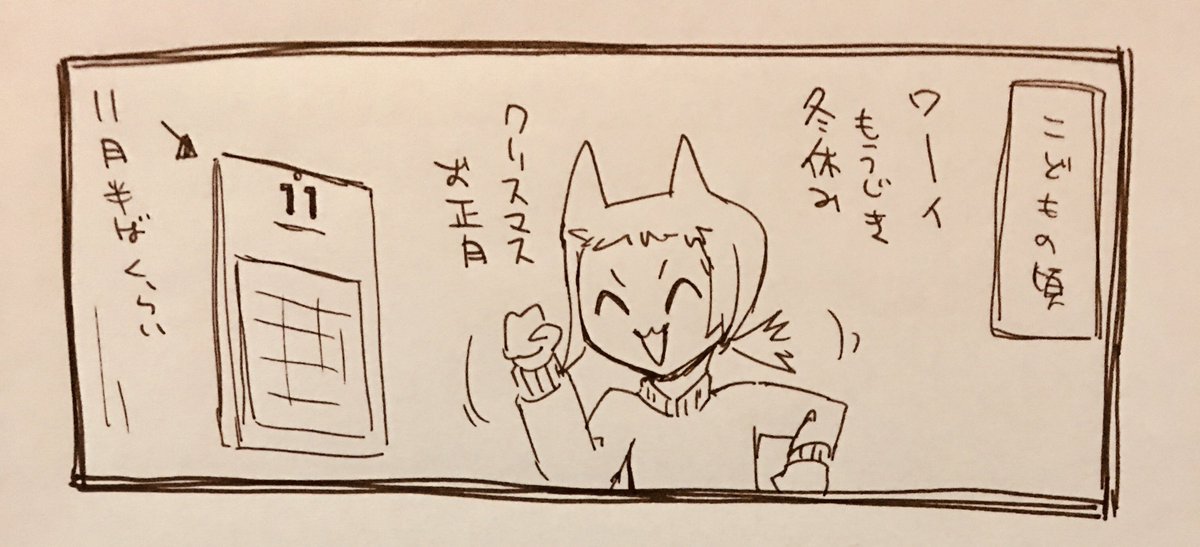 こどもの頃
ワーイ
もうじき
冬休み
クリスマス
お正月
11
11月半ばくらい